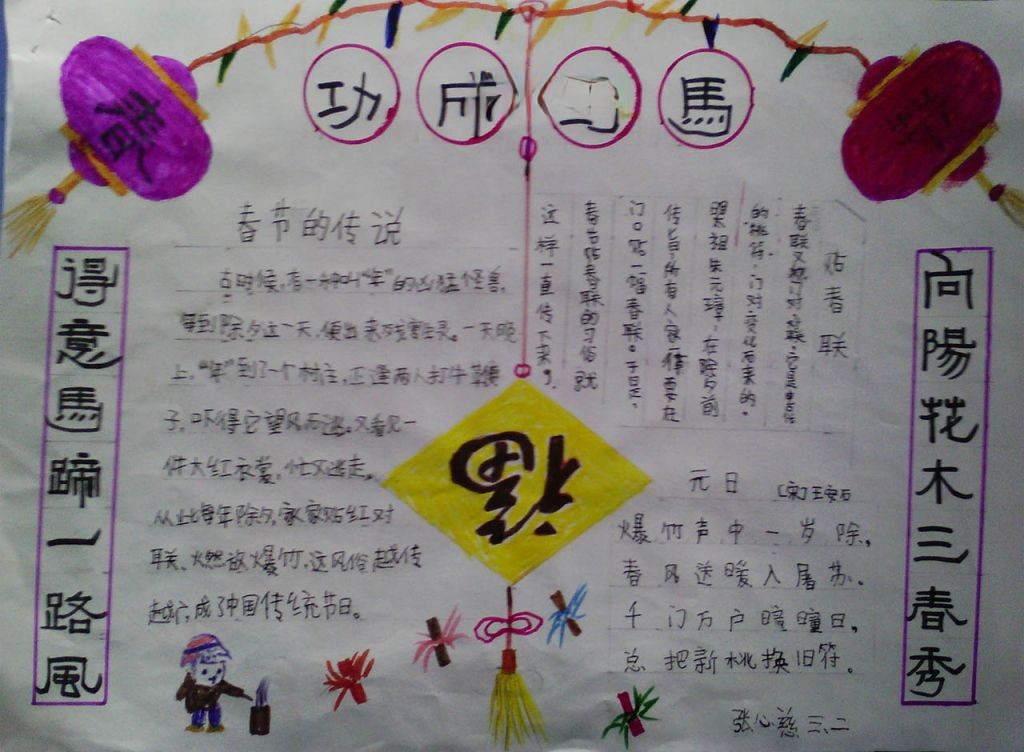 功成
馬
春
得意馬蹄一路風
向陽花木三春秀
春节的传说
古时候,有一种叫“年”的凶猛怪兽,
每到除夕这一天,便出来残害生灵。一天晚
上,“年”到了一个村庄,正逢两人打牛鞭
子,吓得它望风而逃。又看见一
件大红衣裳,忙又逃走。
从此每年除夕,家家贴红对
联、燃放爆竹,这风俗越传
越广,成了中国传统节日。
贴春联
春联又称门对、对联,它是由古代
的桃符、门对变化而来的。
朱元璋,在除夕前
传旨:所有人家一律要在
门口贴一幅春联。于是,
春节贴春联的习俗就
这样一直传下来了。
福
元日 [宋]王安石
爆竹声中一岁除,
春风送暖入屠苏。
千门万户曈曈日,
总把新桃换旧符。
张心慈 三、二